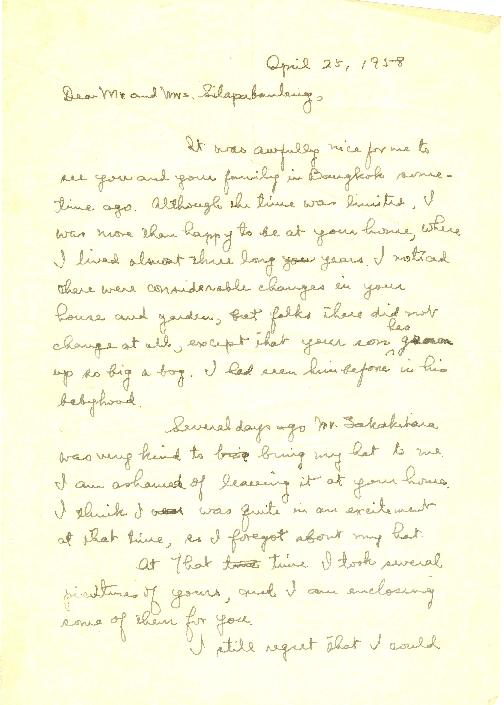 April 25, 1958
Dear Mr. and Mrs. Silapabanleng,
It was awfully nice for me to
see you and your family in Bangkok some-
time ago. Although the time was limited, I
was more than happy to be at your home, where
I lived almost three long years. I noticed
there were considerable changes in your
house and garden, but folks there did not
change at all, except that your son has grown
up so big a boy. I had seen him before in his
babyhood.
Several days ago Mr. Sakakibara
was very kind to bring my hat to me.
I am ashamed of leaving it at your house.
I think I was quite in an excitement
at that time, so I forgot about my hat.
At that time I took several
pictures of yours, and I am enclosing
some of them for you.
I still regret that I could